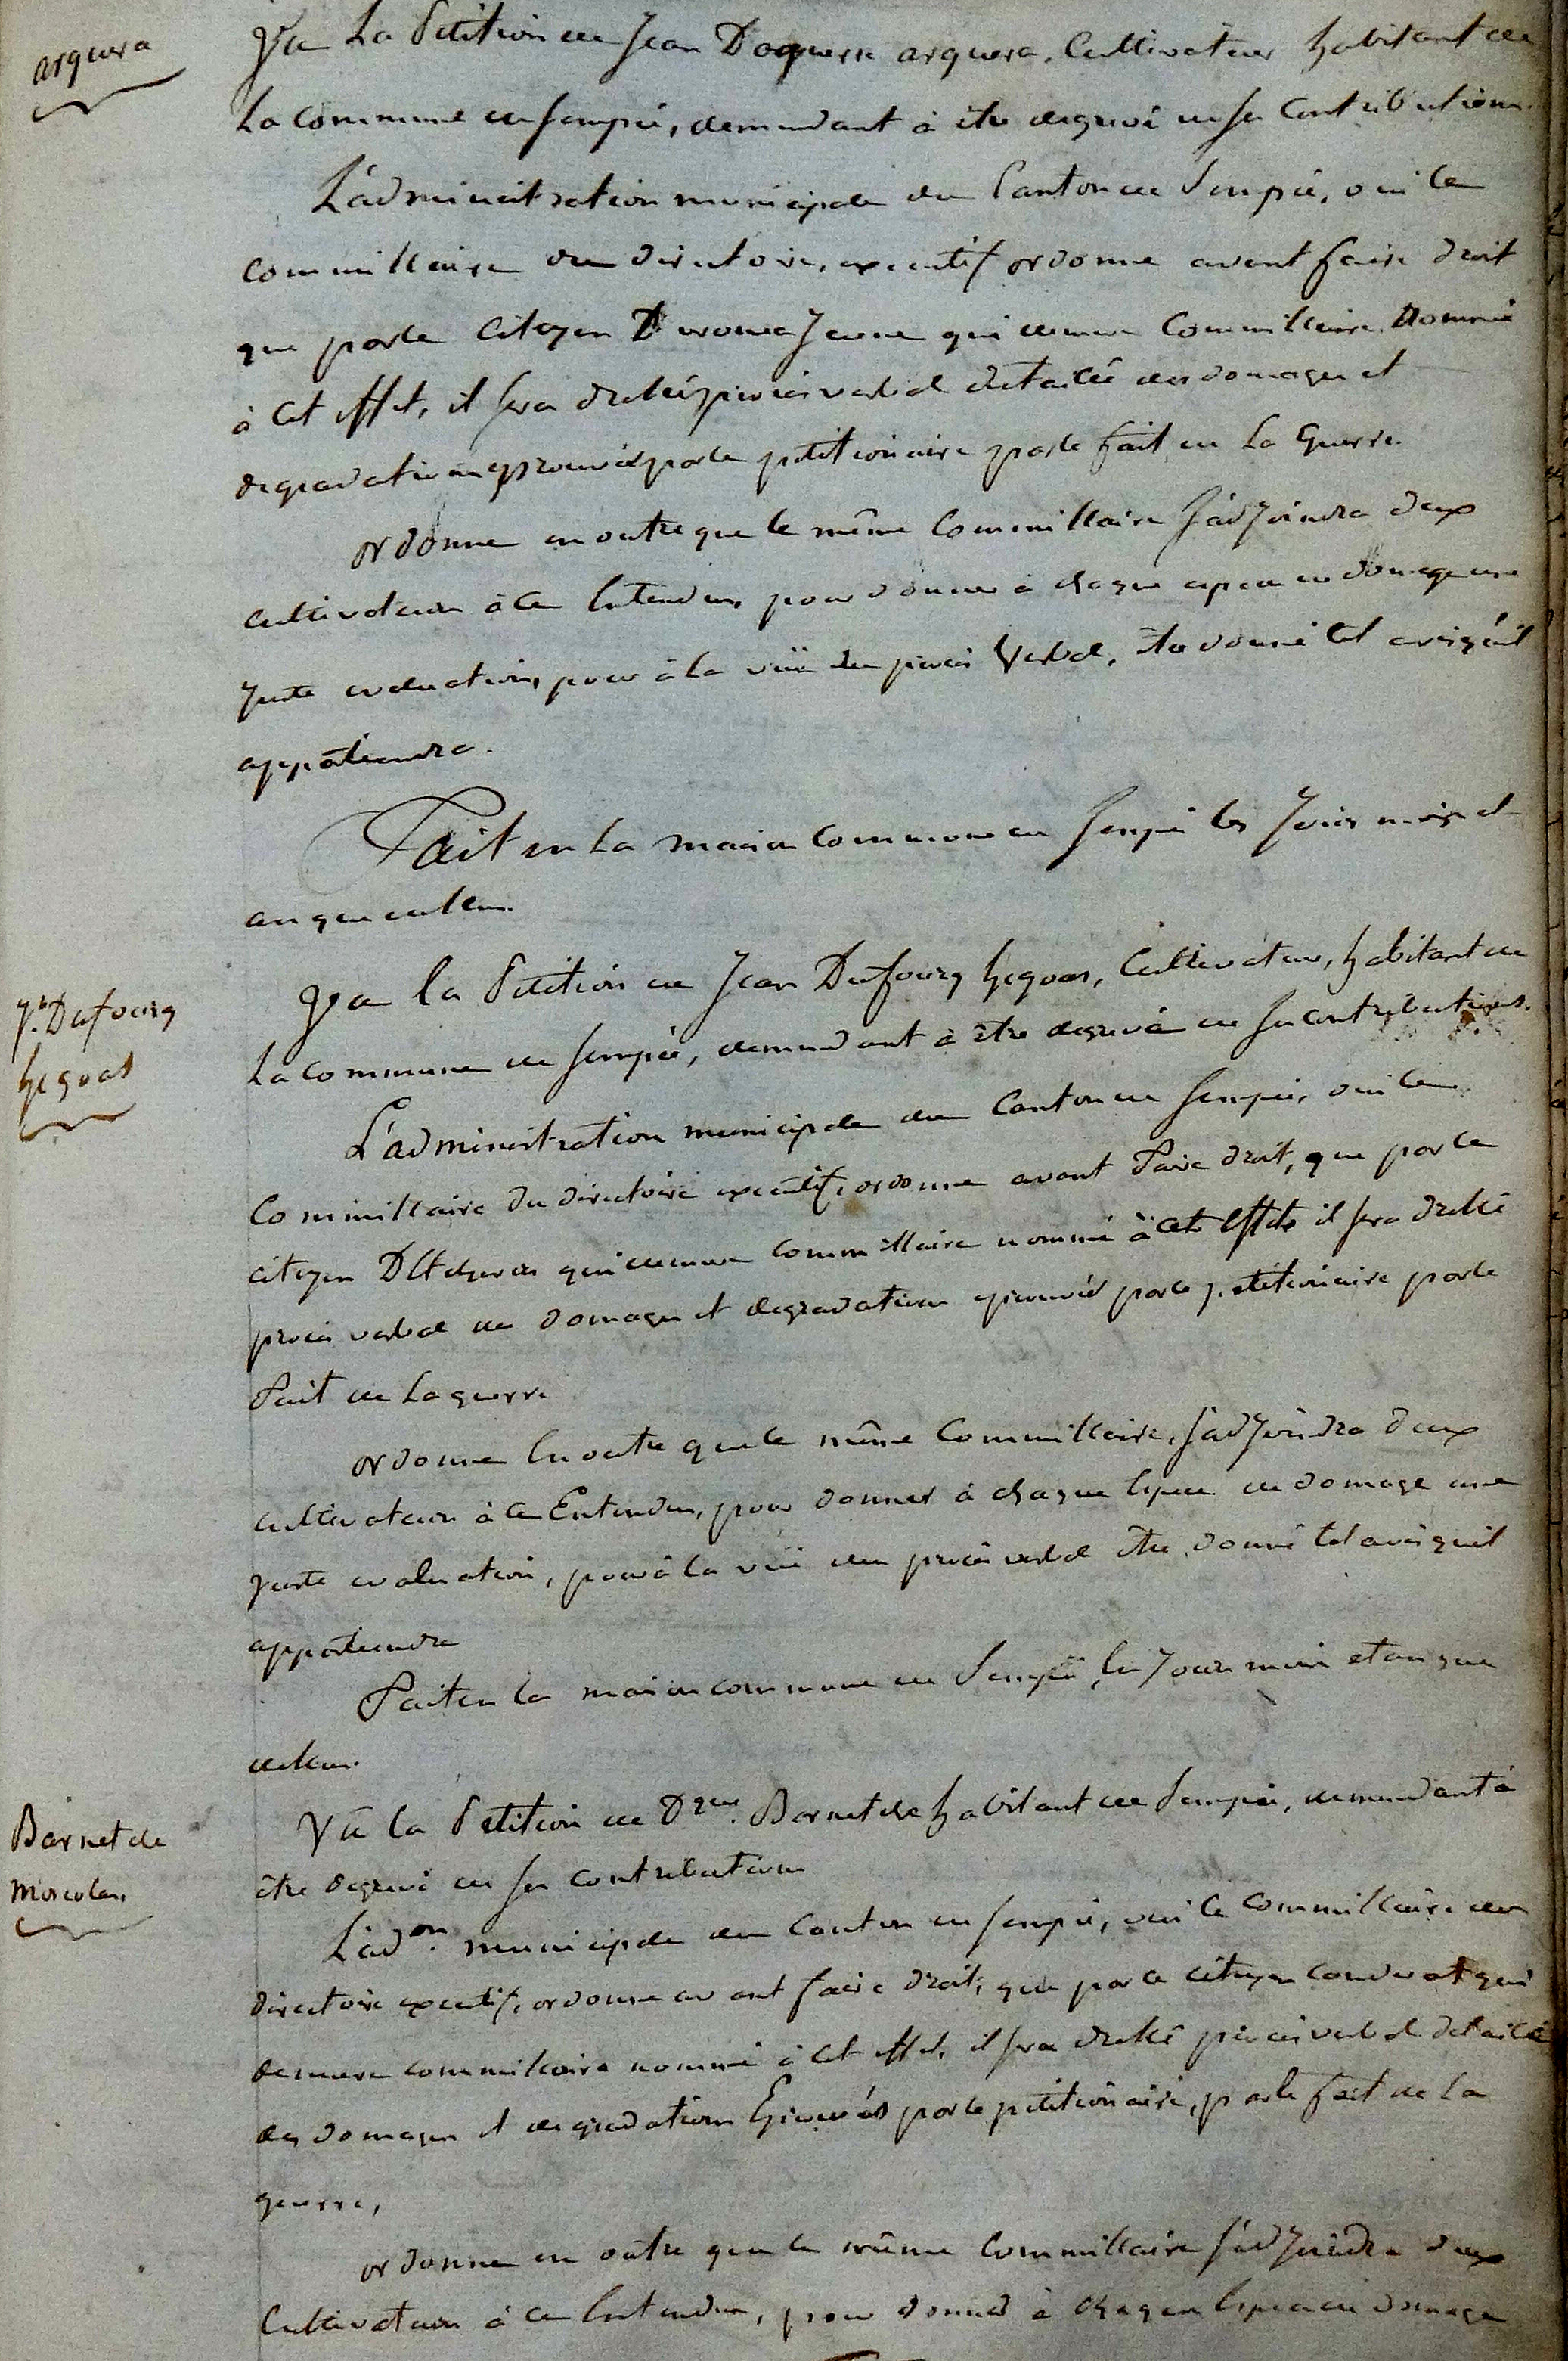 arquera
Vu La Petition de Jean Daguerre arquera, Cultivateur habitant de
La Commune de Sempée, demandant à être degrevé de ses Contributions.
L'administration municipale du Canton de Sempée, oui le
commissaire du directoire, executif ordonne avant faire droit
que par le Citoyen jeune qui demeure Commissaire Nommé
à Cet effet, il sera dressé procés verbal detaillé des domages et
degradations eprouvés par le petitionaire par le fait de La Guerre
ordonne en outre que le même Commissaire s'adjoindra deux
cultivateurs à ce Entendus, pour donner à chaque espece de domage une
juste evaluation, pour à la vüe du procés Verbal, être donné tel avis qu'il
appartiendra.
Fait en La maison Commune de Sempée les Jour mois et
an que dessus.
Jn. Dufourg
hegoas
Vu la Petition de Jean Dufourg hegoas, Cultivateur, habitant de
La Commune de Sempée, demandant à être degrevé de ses contributions.
L'administration municipale du Canton de Sempée, oui le
Commissaire du directoire executif, ordonne avant faire droit, que par le
citoyen qui demeure commissaire nommé à cet effet il sera dressé
procés verbal des domages et degradations eprouvés par le petitionaire par le
fait de La guerre
ordonne En outre que le même Commissaire, s'adjoindra deux
cultivateurs à ce Entendus, pour donner à chaque Espece de domage une
juste evaluation, pour à la vüe du procés verbal être donné tel avis qu'il
appartiendra
Fait en la maison commune de Sempée, les Jour mois et an que
dessus.
Barnetche
Vu la Petition de Barnetche habitant de Sempée, demandant à
être degrevé de ses contributions
L'adon. municipale du Canton de Sempée, oui le commissaire du
directoire executif, ordonne avant faire droit, que par le citoyen qui
demeure commissaire nommé à Cet effet, il sera dressé procés verbal detaillé
des domages et degradations Eprouvés par le petitionaire, par le fait de La
guerre,
ordonne en outre que le même Commissaire s'adjoindra deux
Cultivateurs à ce Entendus, pour donner à chaque Espece de domage